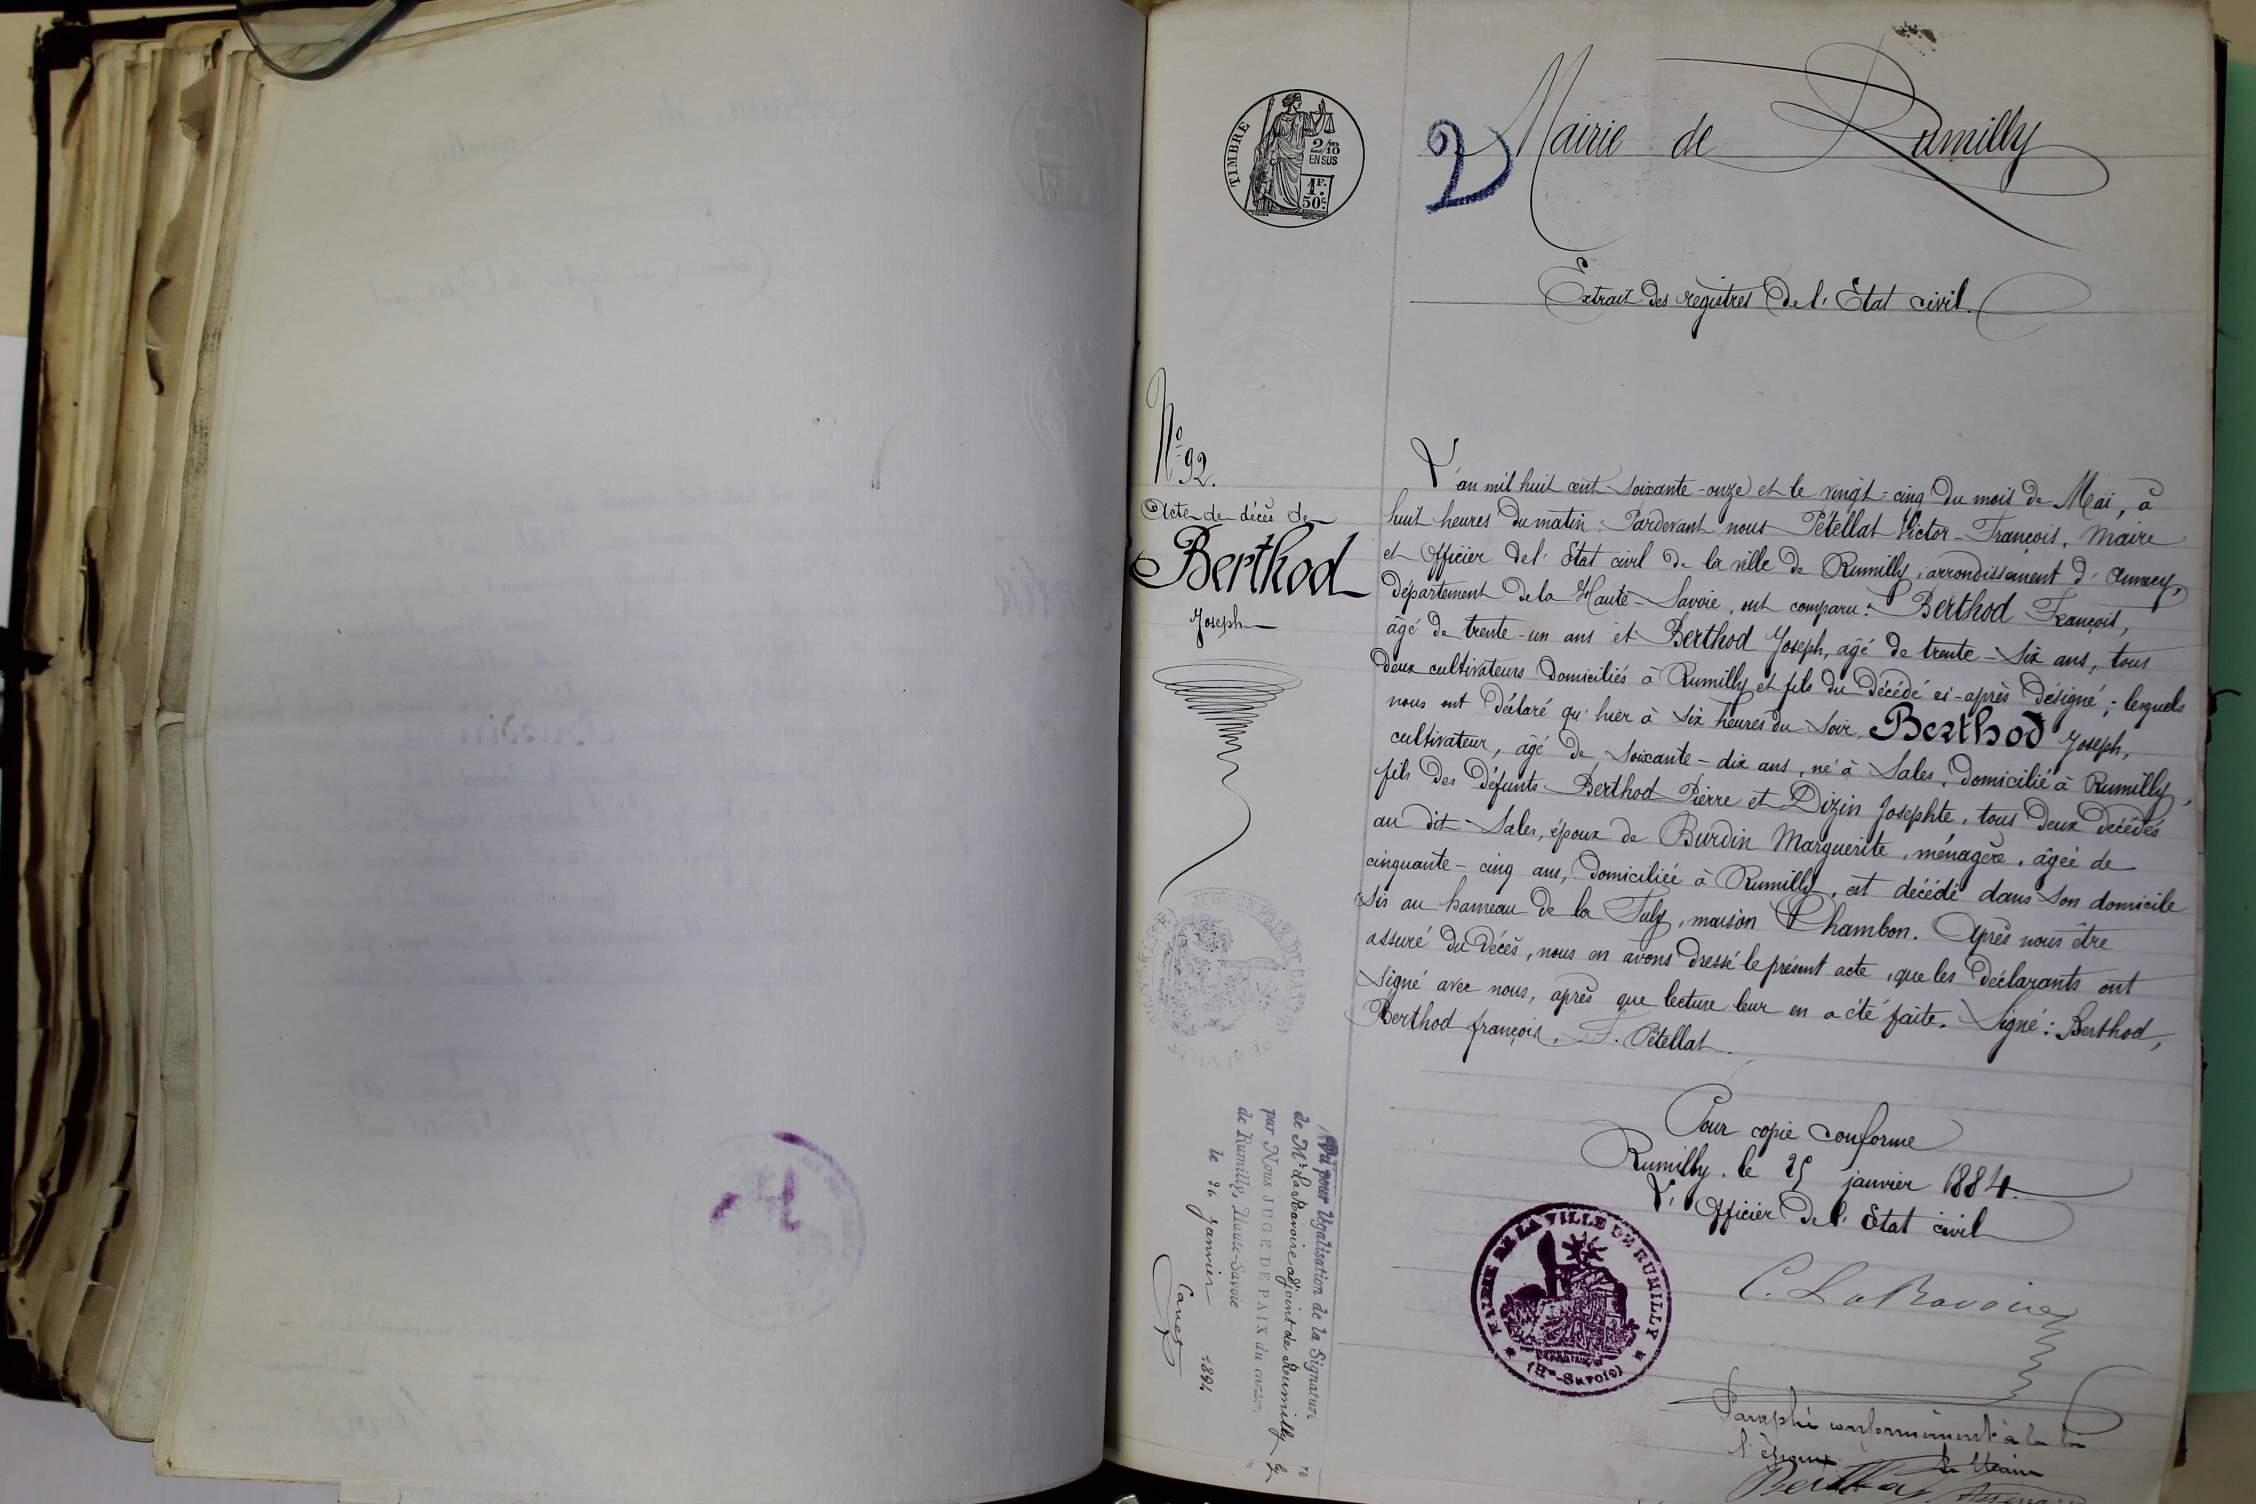 TIMBRE
2/10
EN SUS
1F.
50c.
2
Mairie de Rumilly
Extrait des registres de l'Etat civil.
No 92.
Acte de décès de
Berthod
Joseph
L'an mil huit cent soixante-onze et le vingt-cinq du mois de Mai, à
huit heures du matin. Pardevant nous Pétellat Victor-François, Maire
et Officier de l'Etat civil de la ville de Rumilly, arrondissement d'Annecy,
département de la Haute-Savoie, ont comparu: Berthod François,
âgé de trente-un ans et Berthod Joseph, âgé de trente-six ans, tous
deux cultivateurs domiciliés à Rumilly et fils du décédé ci-après désigné; lesquels
nous ont déclaré qu'hier à six heures du soir, Berthod Joseph,
cultivateur, âgé de soixante-dix ans, né à Sales, domicilié à Rumilly,
fils des défunts Berthod Pierre et Dizin Josephte, tous deux décédés
au dit Sales, époux de Burdin Marguerite, ménagère, âgée de
cinquante-cinq ans, domiciliée à Rumilly, est décédé dans son domicile
sis au hameau de la Fuly, maison Chambon. Après nous être
assuré du décès, nous en avons dressé le présent acte, que les déclarants ont
signé avec nous, après que lecture leur en a été faite. Signé: Berthod,
Berthod françois, F. Pétellat.
Pour copie conforme
Rumilly, le 25 janvier 1884.
L'Officier de l'Etat civil
C. LaRavoire
MAIRIE DE LA VILLE DE RUMILLY
(Hte-Savoie)
Vu pour légalisation de la Signature
de Mr LaRavoire adjoint de Rumilly
par Nous JUGE DE PAIX du canton
de Rumilly, Haute-Savoie
le 26 Janvier 1884
Paraphé conformément à la loi
L'époux Le Maire